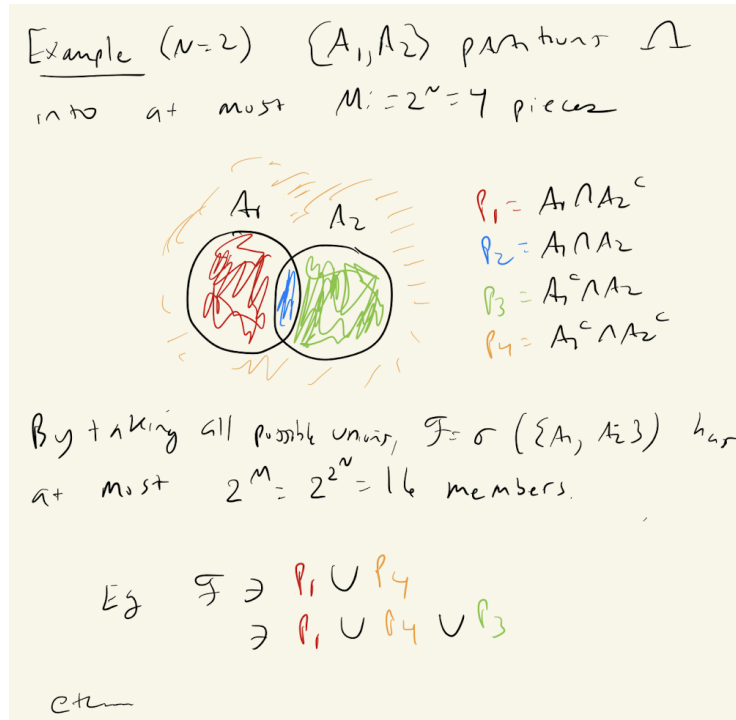 Example (N=2) {A₁, A₂} partitions Ω
into at most M:=2ᴺ=4 pieces
A₁ A₂
P₁ = A₁ ∩ A₂ᶜ
P₂ = A₁ ∩ A₂
P₃ = A₁ᶜ ∩ A₂
P₄ = A₁ᶜ ∩ A₂ᶜ
By taking all possible unions, ℱ = σ({A₁, A₂}) has
at most 2ᴹ = 2^2ᴺ = 16 members.
Eg ℱ ∋ P₁ ∪ P₄
∋ P₁ ∪ P₄ ∪ P₃